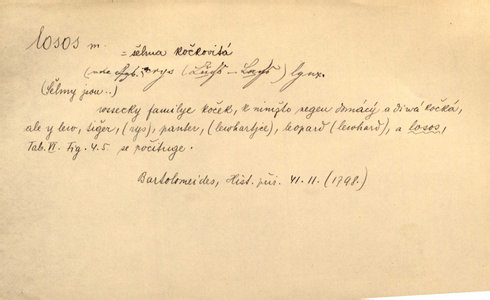 losos m. = šelma kočkovitá
rys (Luchs - Luchs) lynx.
(Šelmy jsou..)
wssecky familye koček, k nimižto negen domácý a diwá kočka,
ale y lew, tiger, (rys), panter, (lewhartjce), leopard (lewhard), a losos,
Tab. VI. Fig. 4. 5 se počituge.
Bartolomeides, Hist. přir. 41. 11. (1798.)